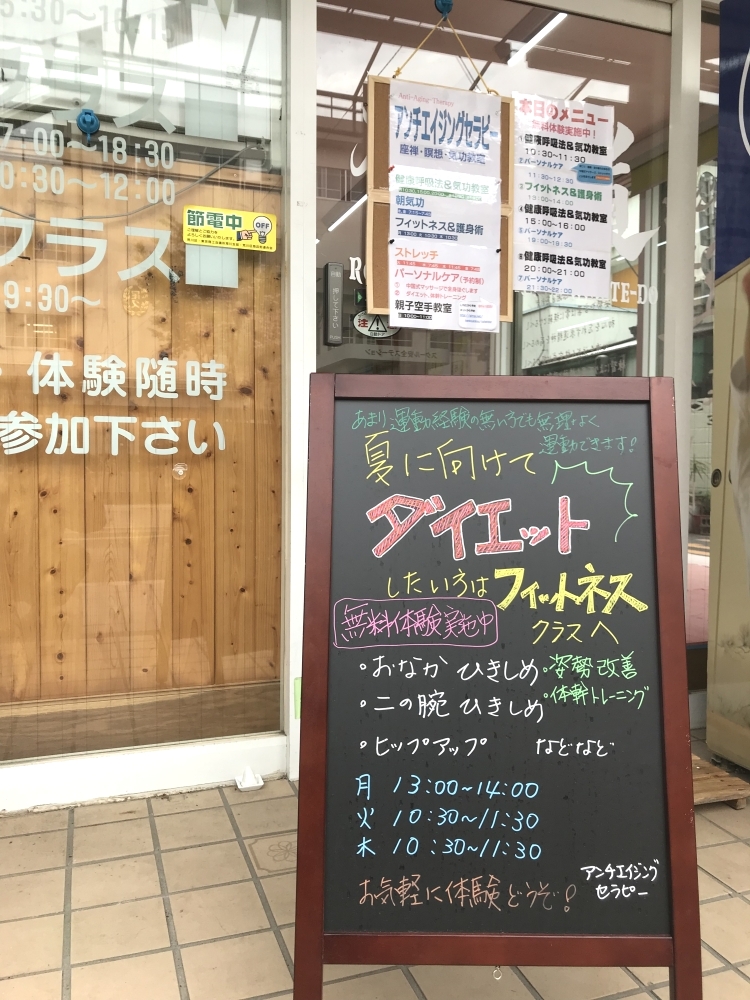 クラス
7:00〜18:30
0:30〜12:00
クラス
9:30〜
体験随時
参加下さい
節電中
OFF
Anti-Aging Therapy
アンチエイジングセラピー
座禅・瞑想・気功教室
健康呼吸法&気功教室
朝気功
フィットネス&護身術
ストレッチ
パーソナルケア(予約制)
中国式マッサージで全身ほぐします
ダイエット、体幹トレーニング
親子空手教室
本日のメニュー
無料体験実施中!
健康呼吸法&気功教室
10:30〜11:30
パーソナルケア
11:30〜12:30
フィットネス&護身術
13:00〜14:00
健康呼吸法&気功教室
15:00〜16:00
パーソナルケア
健康呼吸法&気功教室
20:00〜21:00
パーソナルケア
21:00〜22:00
TE-DO
注
あまり運動経験の無い方でも無理なく
運動できます!
夏に向けて
ダイエット
したい方は フィットネス
クラスへ
無料体験実施中
・おなか ひきしめ
・姿勢改善
・二の腕 ひきしめ
・体幹トレーニング
・ヒップアップ などなど
月 13:00~14:00
火 10:30~11:30
木 10:30~11:30
お気軽に体験どうぞ!
アンチエイジング
セラピー